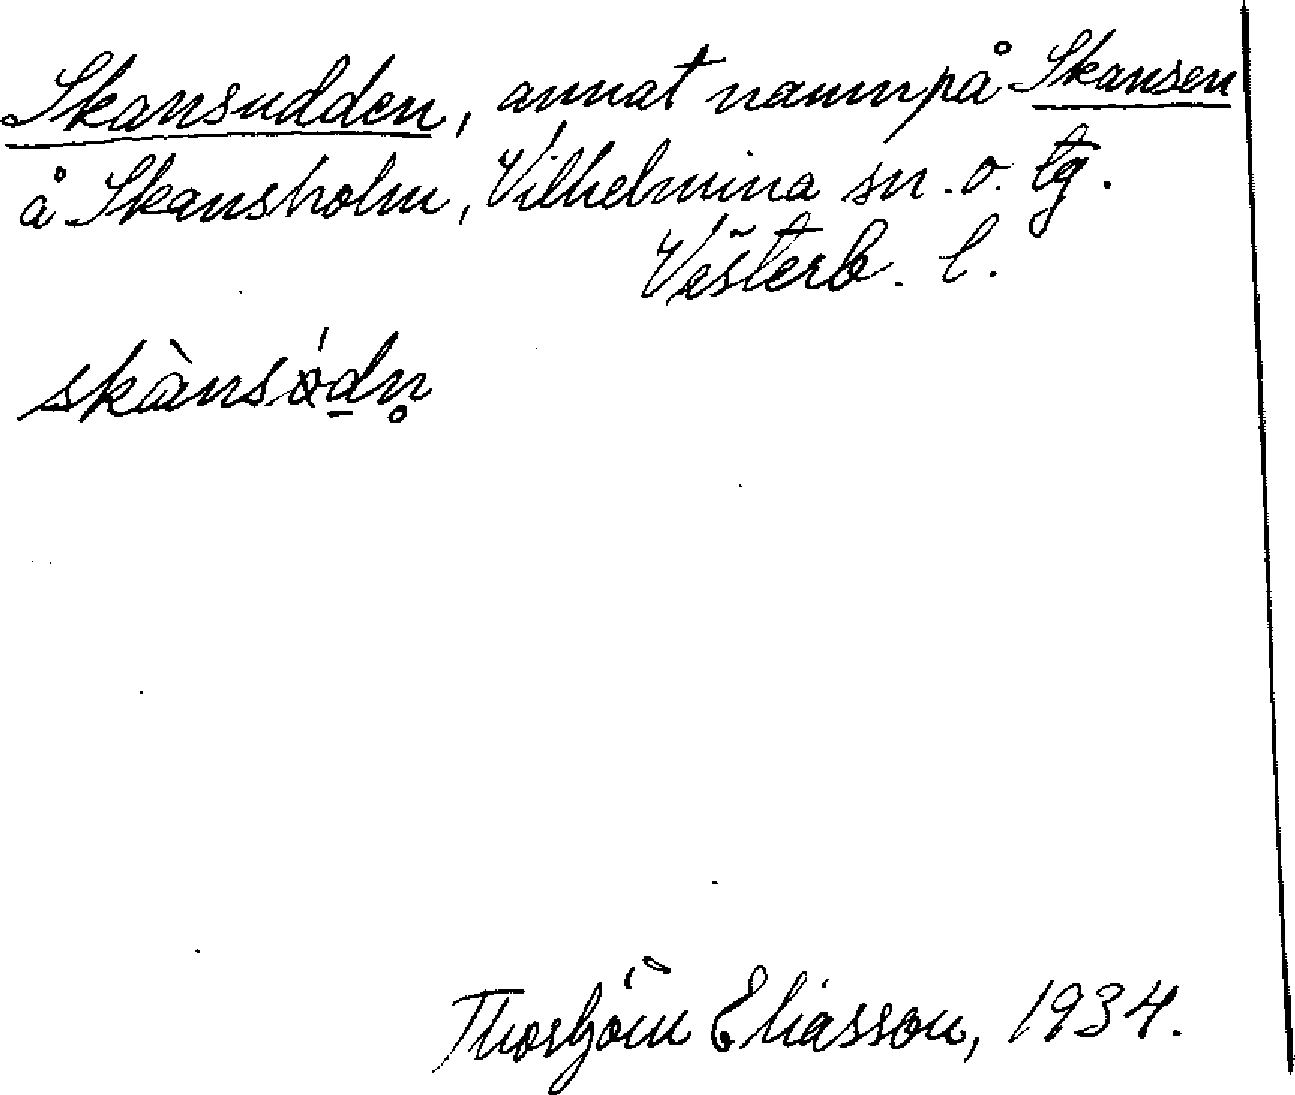 Skansudden, annat namn på Skansen
å Skansholm, Vilhelmina sn. o. tg.
Västerb. l.
skànsɷ́d̠n̥
Thorbjörn Eliasson, 1934.